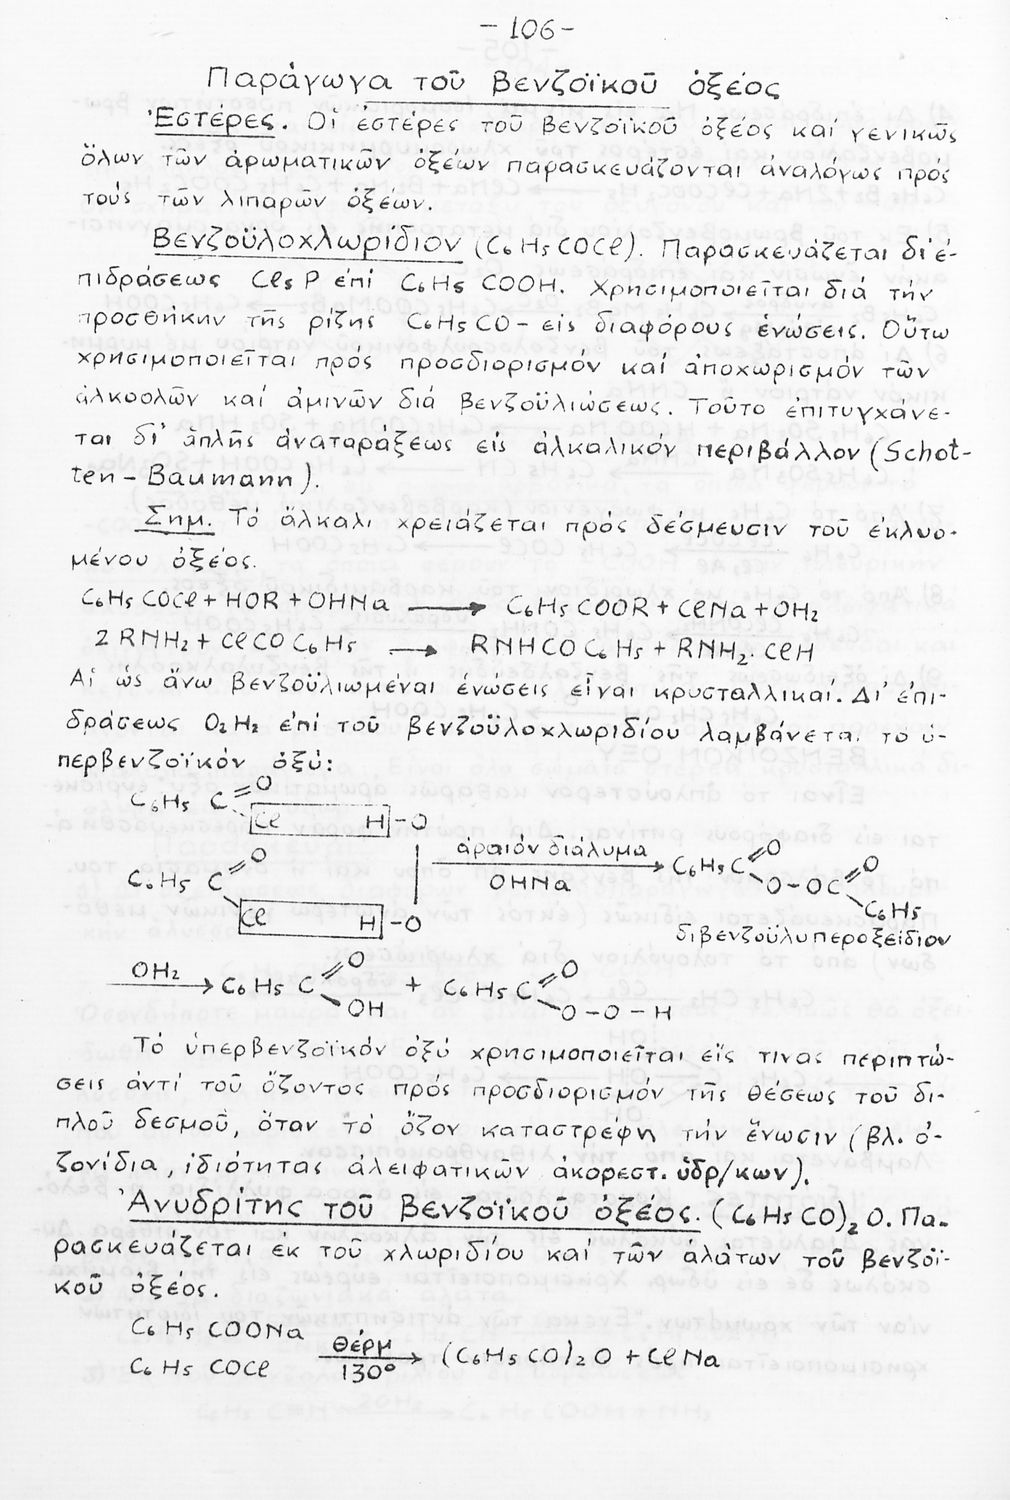 - 106 -
Παράγωγα τοῦ Βενζοϊκοῦ ὀξέος
Ἐστέρες. Οἱ ἐστέρες τοῦ βενζοϊκοῦ ὀξέος καί γενικῶς
ὅλων τῶν ἀρωματικῶν ὀξέων παρασκευάζονται ἀναλόγως πρός
τούς τῶν λιπαρῶν ὀξέων.
Βενζοϋλοχλωρίδιον (C₆H₅COCl). Παρασκευάζεται δι' ἐ-
πιδράσεως Cl₅P ἐπί C₆H₅COOH. Χρησιμοποιεῖται διά τήν
προσθήκην τῆς ρίζης C₆H₅CO- εἰς διαφόρους ἑνώσεις. Οὕτω
χρησιμοποιεῖται πρός προσδιορισμόν καί ἀποχωρισμόν τῶν
ἀλκοολῶν καί ἀμινῶν διά βενζοϋλιώσεως. Τοῦτο ἐπιτυγχάνε-
ται δι' ἁπλῆς ἀναταράξεως εἰς ἀλκαλικόν περιβάλλον (Schot-
ten - Baumann).
Σημ. Τό ἄλκαλι χρειάζεται πρός δέσμευσιν τοῦ ἐκλυο-
μένου ὀξέος.
C₆H₅COCl + HOR + OHNa ⟶ C₆H₅COOR + ClNa + OH₂
2RNH₂ + ClCOC₆H₅ ⟶ RNHCOC₆H₅ + RNH₂.ClH
Αἱ ὡς ἄνω βενζοϋλιωμέναι ἑνώσεις εἶναι κρυσταλλικαί. Δι' ἐπι-
δράσεως O₂H₂ ἐπί τοῦ βενζοϋλοχλωριδίου λαμβάνεται τό ὑ-
περβενζοϊκόν ὀξύ:
C₆H₅ C=O Cl H-O
ἀραιόν διάλυμα OHNa ⟶ C₆H₅C=O O-OC=O C₆H₅
C₆H₅ C=O Cl H-O
διβενζοϋλυπεροξείδιον
OH₂ ⟶ C₆H₅ C=O OH + C₆H₅C=O O-O-H
Τό ὑπερβενζοϊκόν ὀξύ χρησιμοποιεῖται εἴς τινας περιπτώ-
σεις ἀντί τοῦ ὄζοντος πρός προσδιορισμόν τῆς θέσεως τοῦ δι-
πλοῦ δεσμοῦ, ὅταν τό ὄζον καταστρέφη τήν ἕνωσιν (βλ. ὀ-
ζονίδια, ἰδιότητας ἀλειφατικῶν ἀκορεστ. ὑδρ/κων).
Ἀνυδρίτης τοῦ βενζοϊκοῦ ὀξέος. (C₆H₅CO)₂O. Πα-
ρασκευάζεται ἐκ τοῦ χλωριδίου καί τῶν ἁλάτων τοῦ βενζοϊ-
κοῦ ὀξέος.
C₆H₅COONa
C₆H₅COCl θέρμ 130° ⟶ (C₆H₅CO)₂O + ClNa